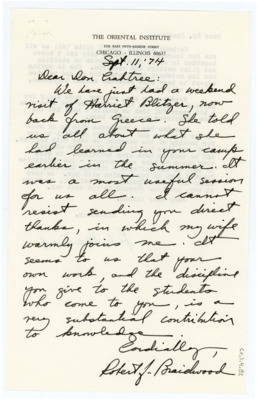 THE ORIENTAL INSTITUTE
1155 EAST FIFTY-EIGHTH STREET
CHICAGO · ILLINOIS 60637
Sept. 11, '74
Dear Don Crabtree:
We have just had a weekend
visit of Harriet Blitzer, now
back from Greece. She told
us all about what she
had learned in your camp
earlier in the summer. It
was a most useful session
for us all. I cannot
resist sending you direct
thanks, in which my wife
warmly joins me. It
seems to us that your
own work, and the discipline
you give to the students
who come to you, is a
very substantial contribution
to knowledge.
Cordially,
Robert J. Braidwood